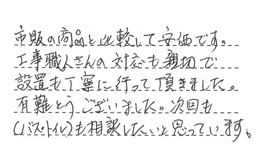 市販の商品と比較して安価です。
工事職人さんの対応も親切で
設置も丁寧に行って頂きました。
有難とうございました。次回も
(バス、トイレ)も相談したいと思っています。